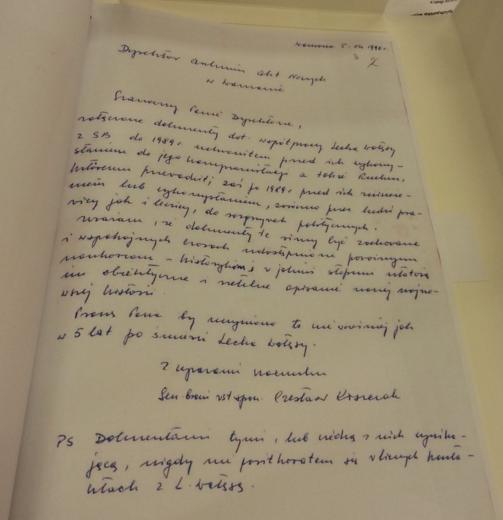 Warszawa 5. IV. 1996 r.
2
Dyrektor Archiwum Akt Nowych
w Warszawie
Szanowny Panie Dyrektorze,
załączone dokumenty dot. współpracy Lecha Wałęsy
z SB do 1989 r. uchroniłem przed ich wykorzy-
staniem do jego kompromitacji a także Ruchu,
któremu przewodził; zaś po 1989 r. przed ich zniszcze-
niem lub wykorzystaniem, zarówno przez ludzi pra-
wicy jak i lewicy, do rozgrywek politycznych.
Uważam, że dokumenty te winny być zachowane
i w spokojnych czasach udostępnione poważnym
naukowcom - historykom, w jakimś stopniu ułatwią
im obiektywne i rzetelne opisanie naszej najno-
wszej historii.
Proszę Pana by uczyniono to nie wcześniej jak
w 5 lat po śmierci Lecha Wałęsy.
Z wyrazami szacunku
Gen broni w st. spocz. Czesław Kiszczak
PS Dokumentami tymi, lub wiedzą z nich wynika-
jącą, nigdy nie posiłkowałem się w licznych konta-
ktach z L. Wałęsą.